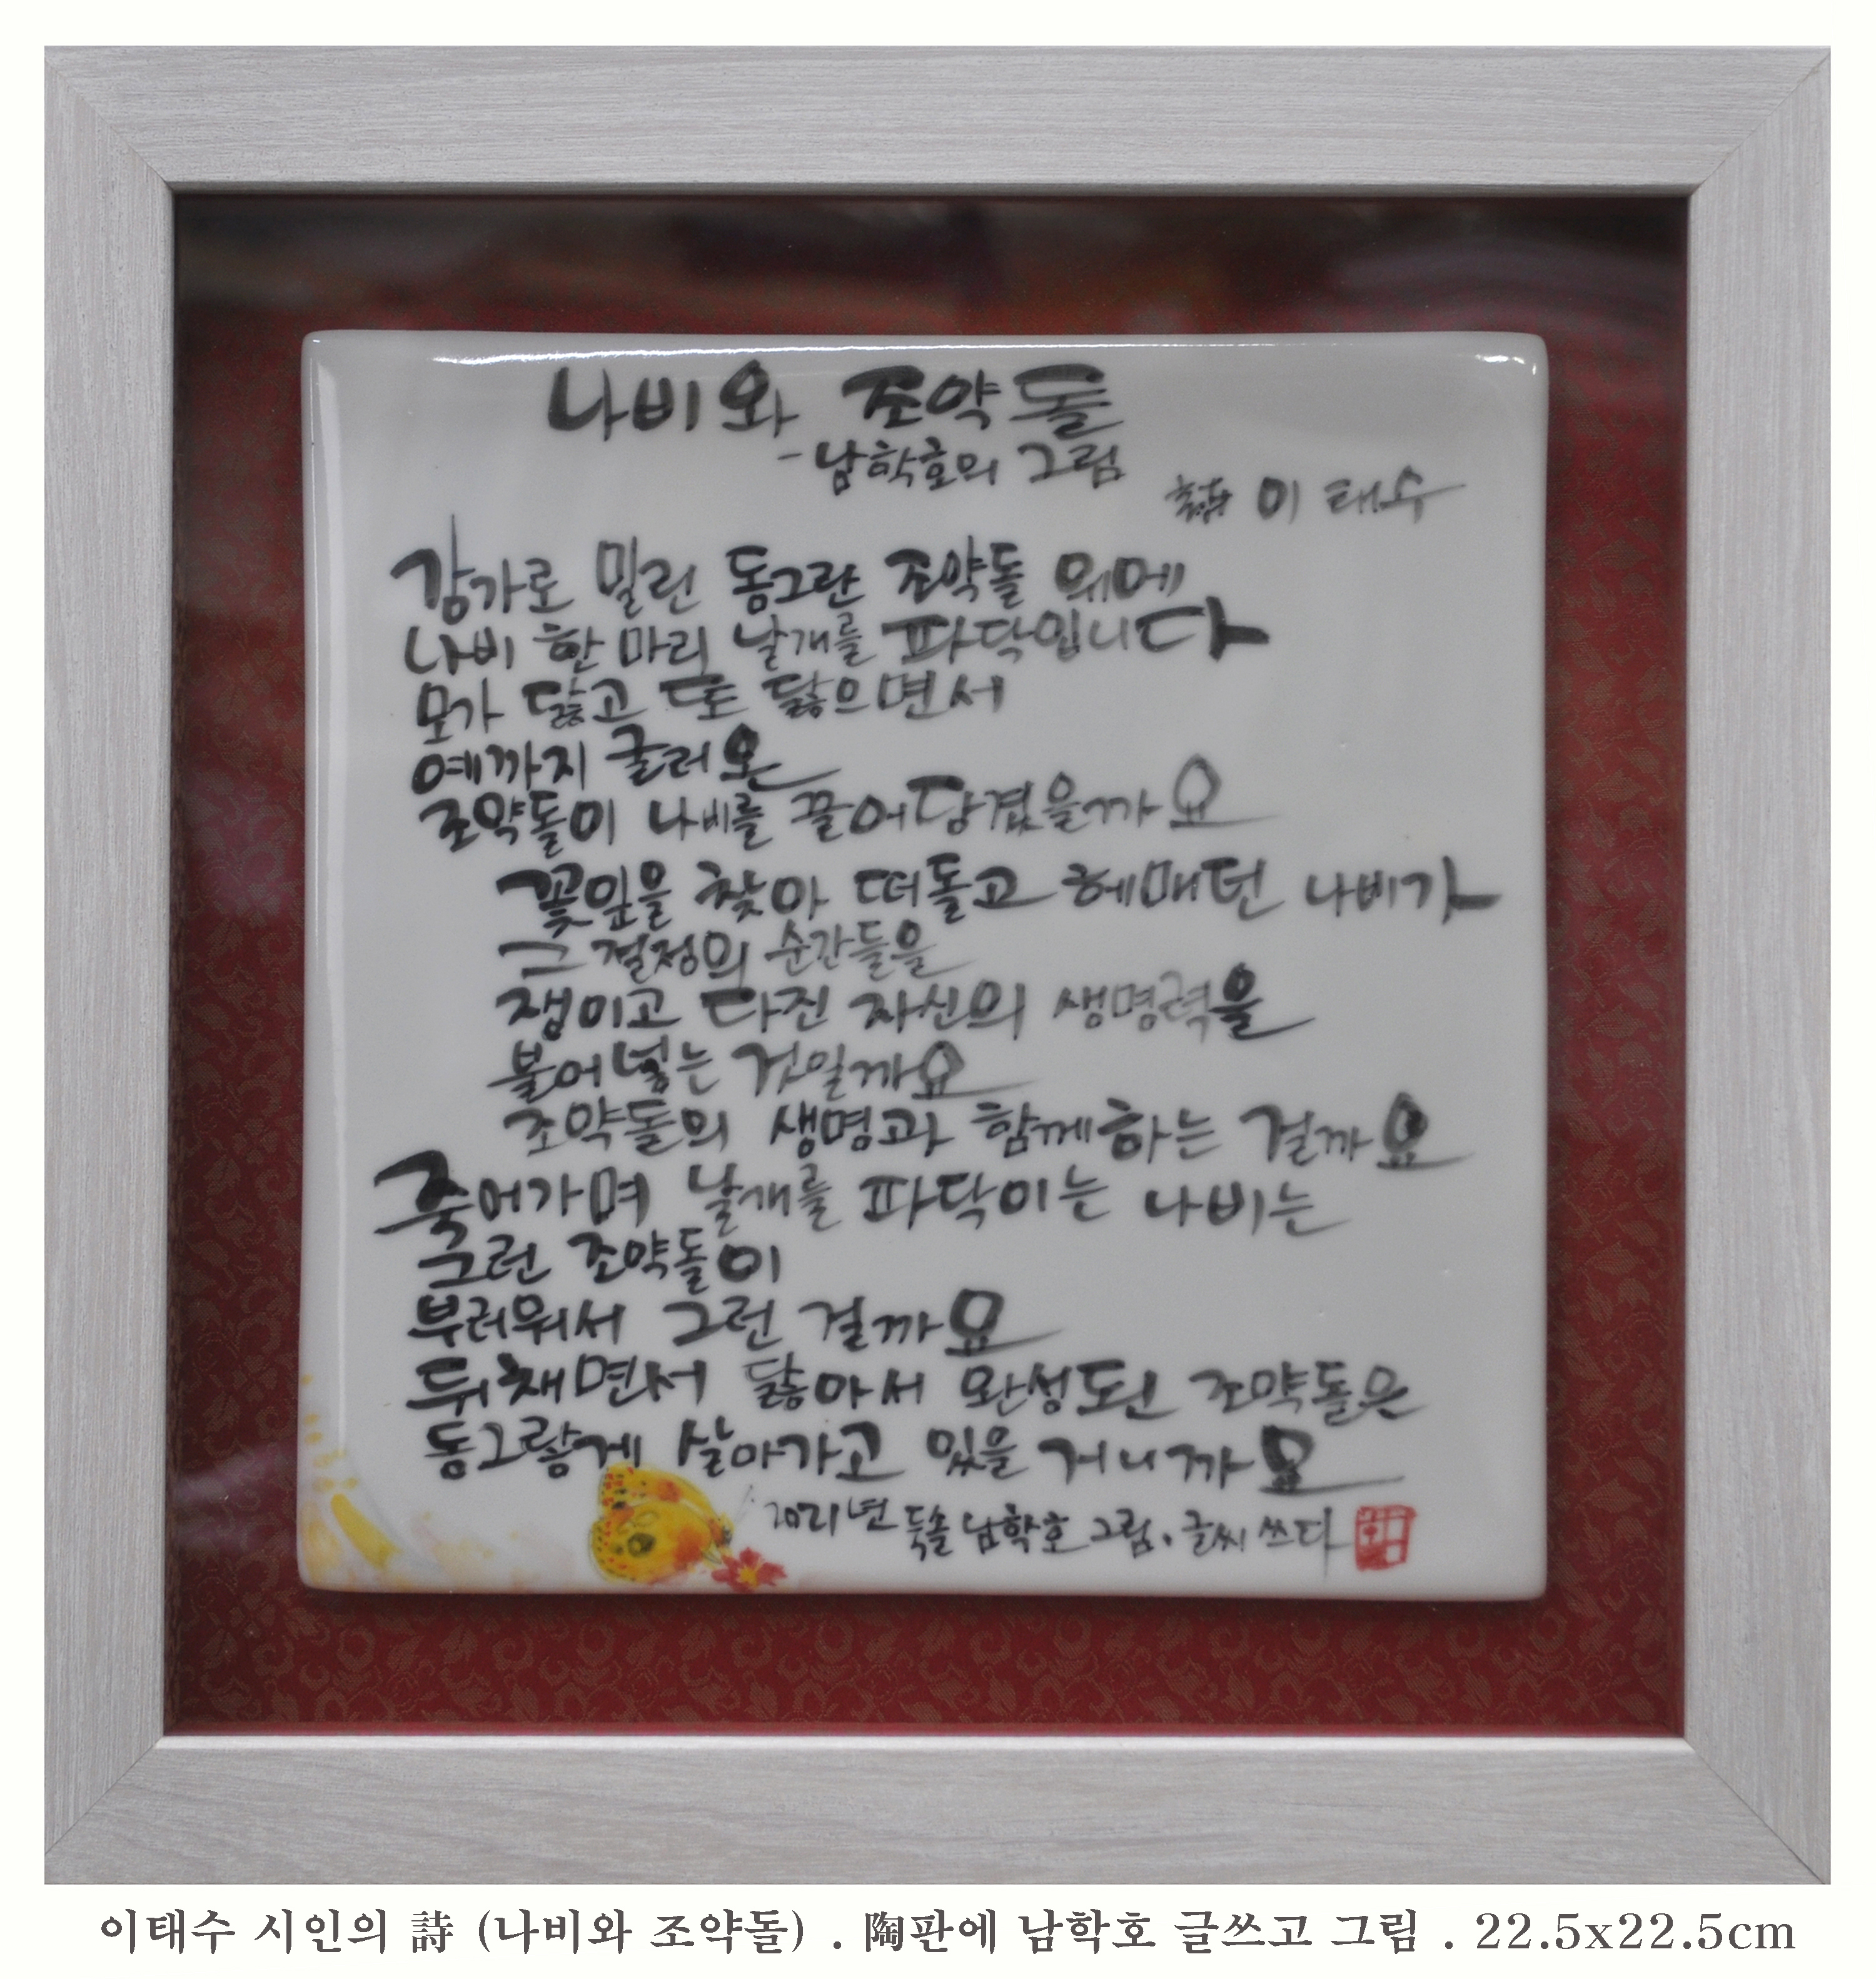 나비와 조약돌
-남학호의 그림
詩 이태수
강가로 밀린 동그란 조약돌 위에
나비 한 마리 날개를 파닥입니다
모가 닳고 또 닳으면서
예까지 굴러온
조약돌이 나비를 끌어당겼을까요
꽃잎을 찾아 떠돌고 헤매던 나비가
그 결정의 순간들을
쟁이고 다진 자신의 생명력을
불어넣는 것일까요
조약돌의 생명과 함께하는 걸까요
죽어가며 날개를 파닥이는 나비는
그런 조약돌이
부러워서 그런 걸까요
뒤채면서 닳아서 완성된 조약돌은
동그랗게 살아가고 있을 거니까요
2021년 둑솔 남학호 그림.글씨 쓰다
이태수 시인의 詩 (나비와 조약돌) . 陶판에 남학호 글쓰고 그림 . 22.5x22.5cm